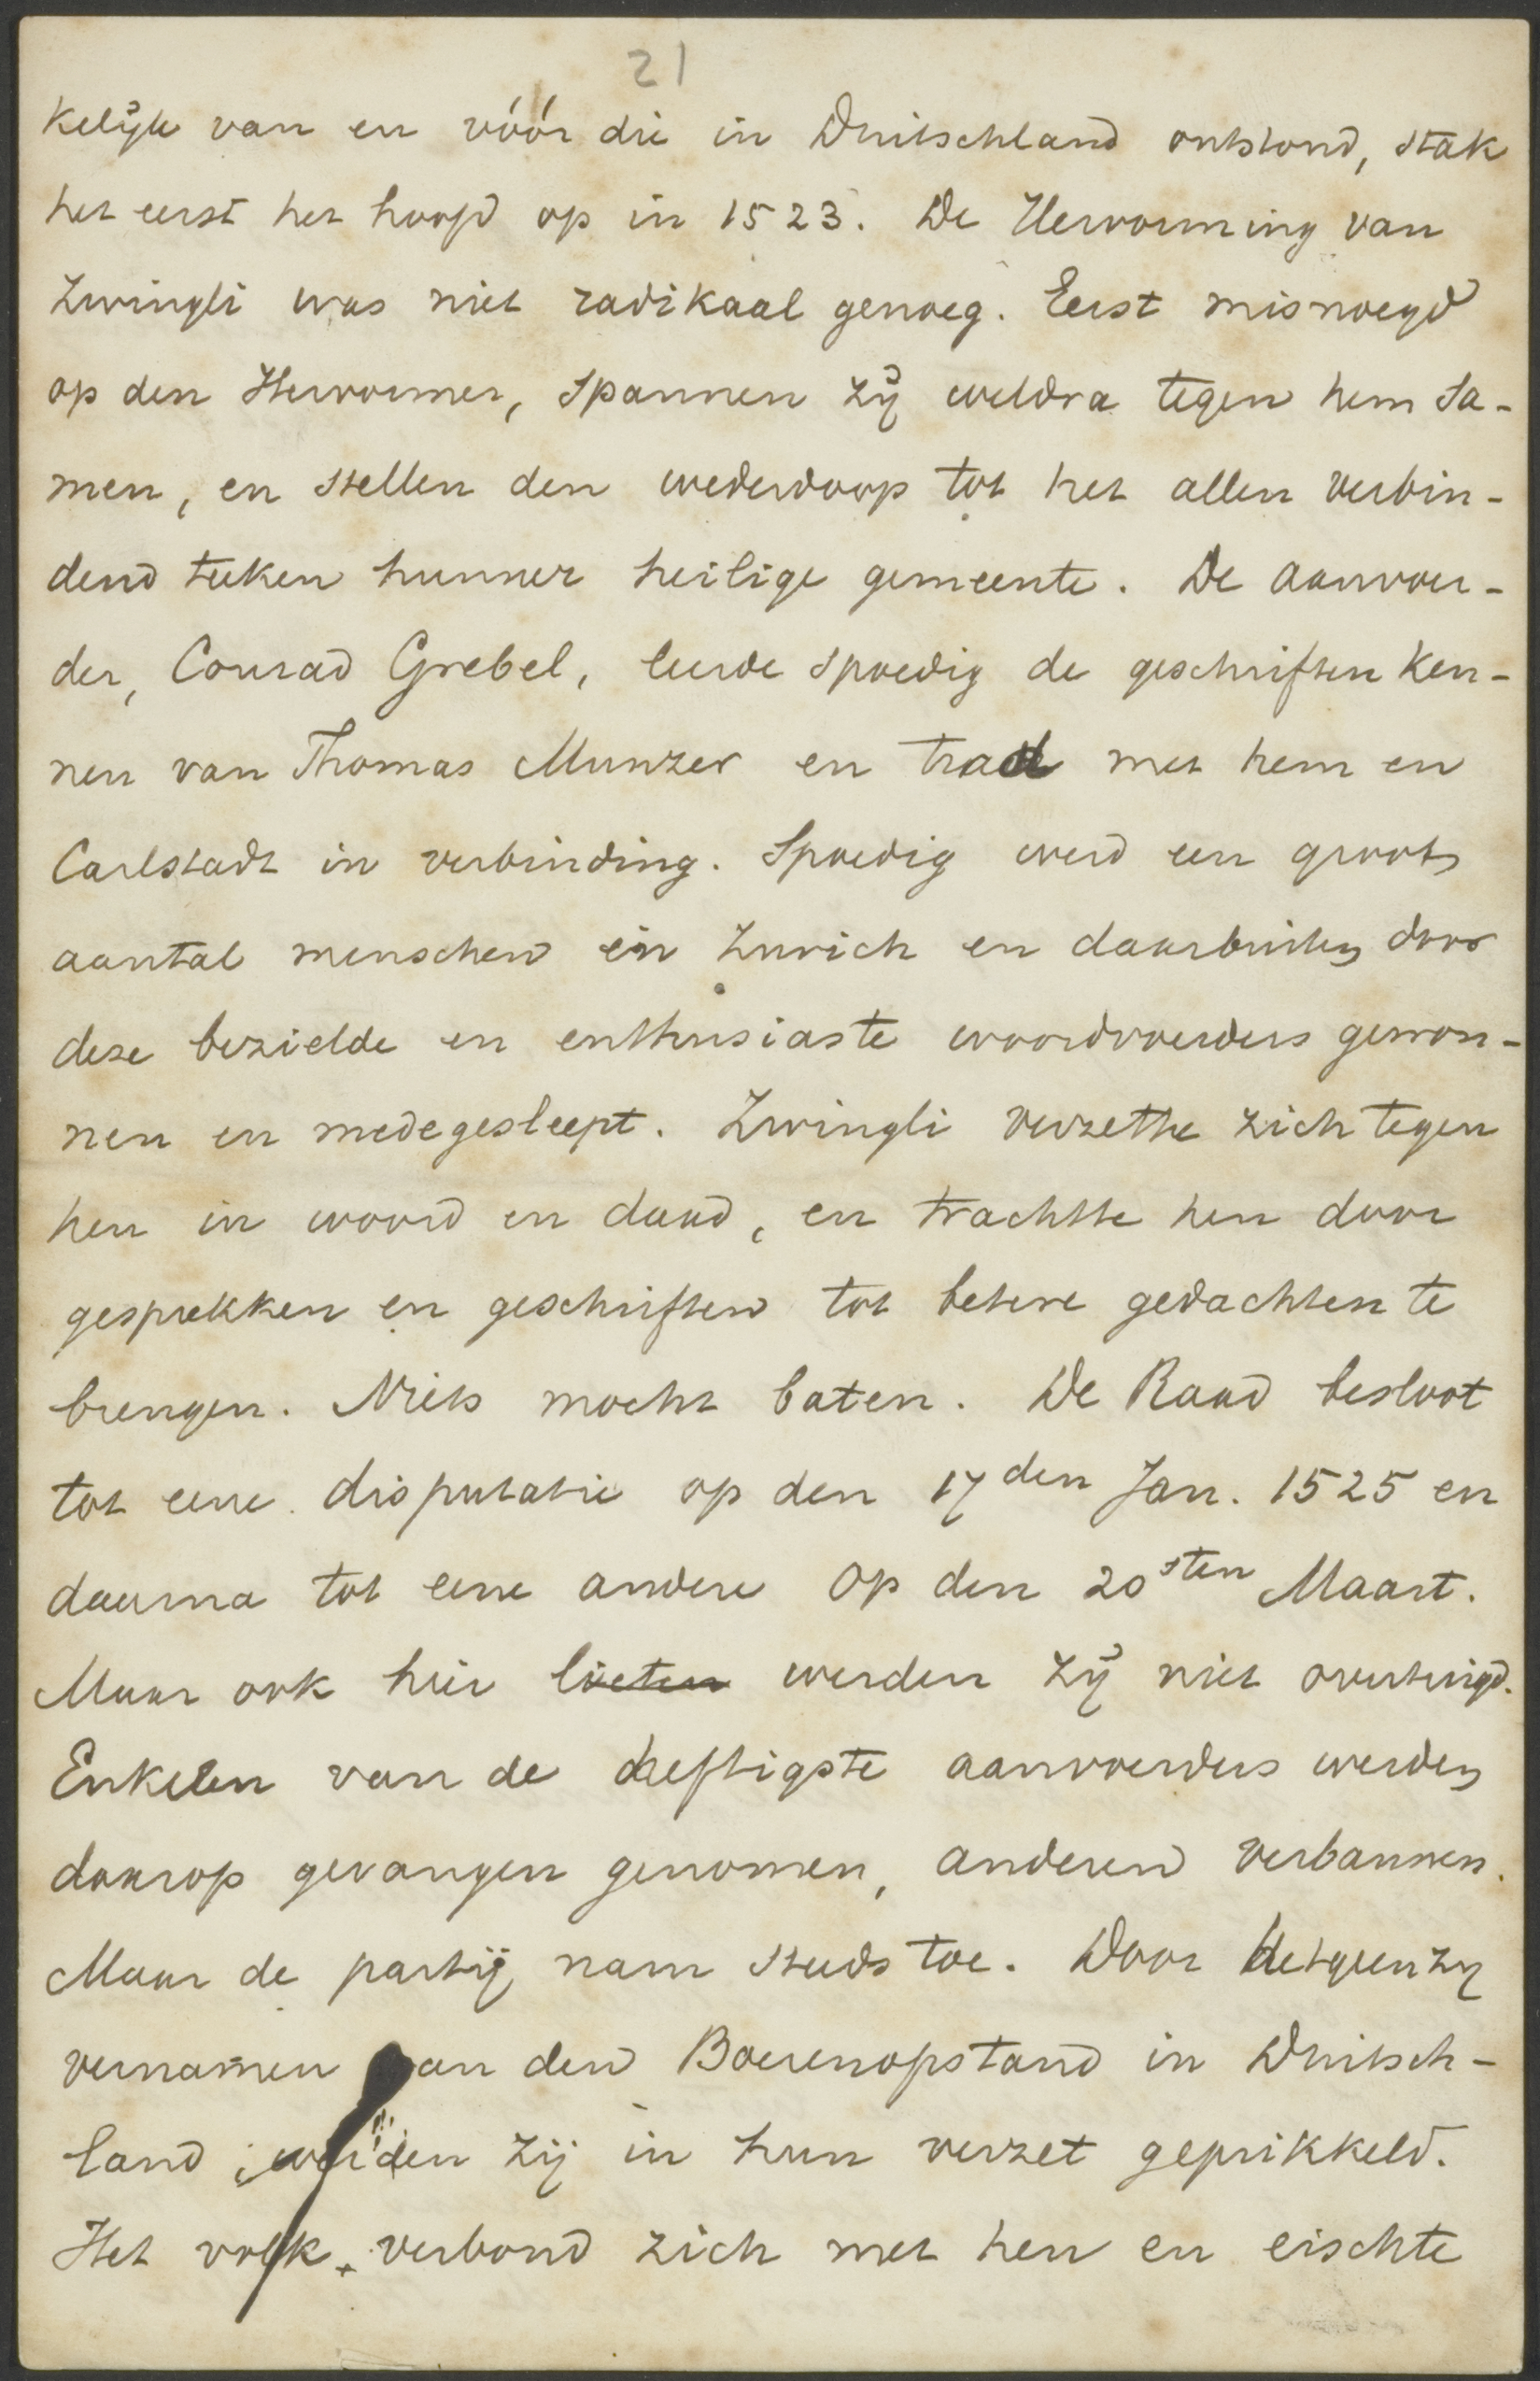 21
kelijk van en vóór die in Duitschland ontstond, stak
het eerst het hoofd op in 1523. De Hervorming van
Zwingli was niet radikaal genoeg. Eerst misnoegd
op den Hervormer, spannen zij weldra tegen hem sa-
men, en stellen den wederdoop tot het allen verbin-
dend teeken hunner heilige gemeente. De aanvoer-
der, Conrad Grebel, leerde spoedig de geschriften ken-
nen van Thomas Munzer en trad met hem en
Carlstadt in verbinding. Spoedig werd een groot
aantal menschen in Zurich en daarbuiten door
deze bezielde en enthusiaste woordvoerders gewon-
nen en medegesleept. Zwingli verzette zich tegen
hen in woord en daad, en trachtte hen door
gesprekken en geschriften tot betere gedachten te
brengen. Niets mocht baten. De Raad besloot
tot eene disputatie op den 17den Jan. 1525 en
daarna tot eene andere op den 20sten Maart.
Maar ook hier lieten werden zij niet overtuigd.
Enkelen van de heftigste aanvoerders werden
daarop gevangen genomen, anderen verbannen.
Maar de partij nam steeds toe. Door hetgeen zij
vernamen van den Boerenopstand in Duitsch-
land, werden zij in hun verzet geprikkeld.
Het volk verbond zich met hen en eischte